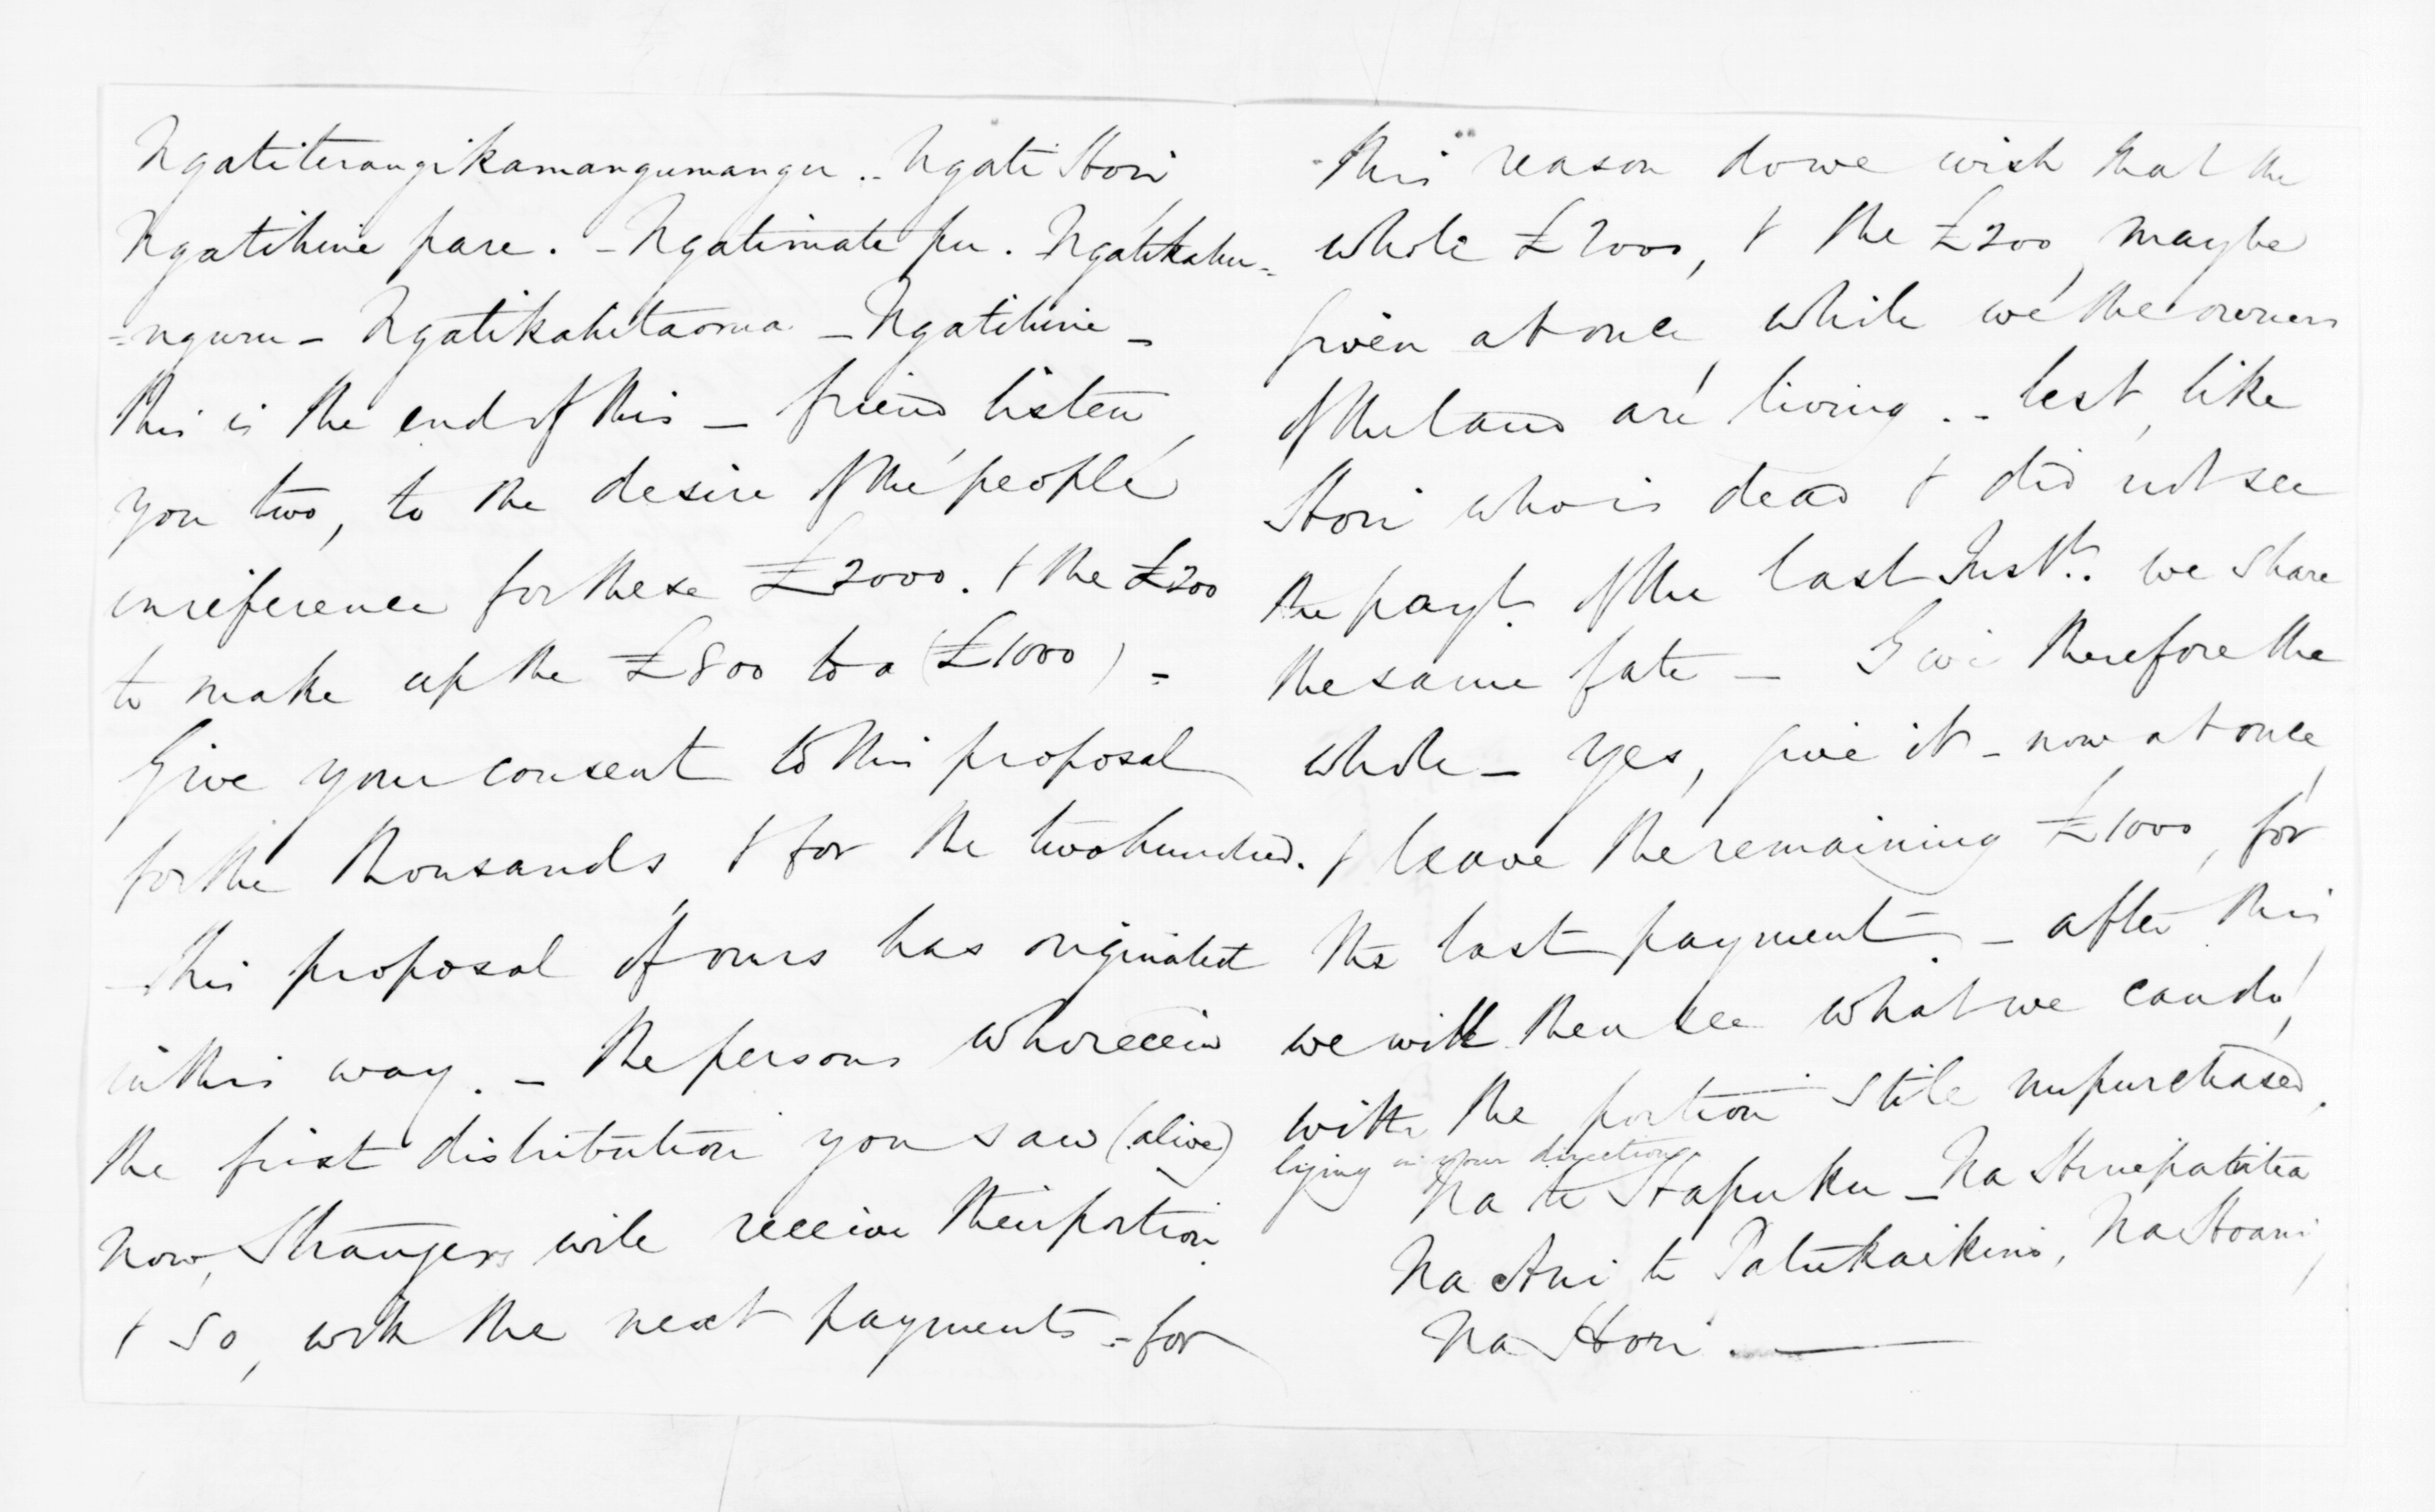 Ngatiterangikamangumangu .. Ngati Hori
Ngatihine pare . - Ngatimate pu . Ngatikahu=
=nguru - Ngatikahutaorua - Ngatihine -
this is the end of this - friend listen,
you two, to the desire of the people
in reference for these £2000. & the £200
to make up the £800 to a (£1000) =
Give your consent to this proposal
for the thousands, & for the two hundred.
- This proposal of ours has originated
in this way. - The persons who receivd
the first distribution you saw (alive)
now, Strangers will receive their portion.
& so, with the next payments = for
this reason do we wish that the
whole £2000, & the £200, may be
given at once, while we the owners
of the land are living .- lest, like
Hori who is dead & did not see
the payt. of the last Inst.t: we share
the same fate - Give therefore the
whole - Yes, give it - now at once,
& leave the remaining £1000, for
the last payment. - after this,
we will then see what we can do,
with the portion still unpurchased.
lying in your direction.
Na te Hapuku - Na
Na Ani te Patukaikino, Na Hoani,
Na Hori . -